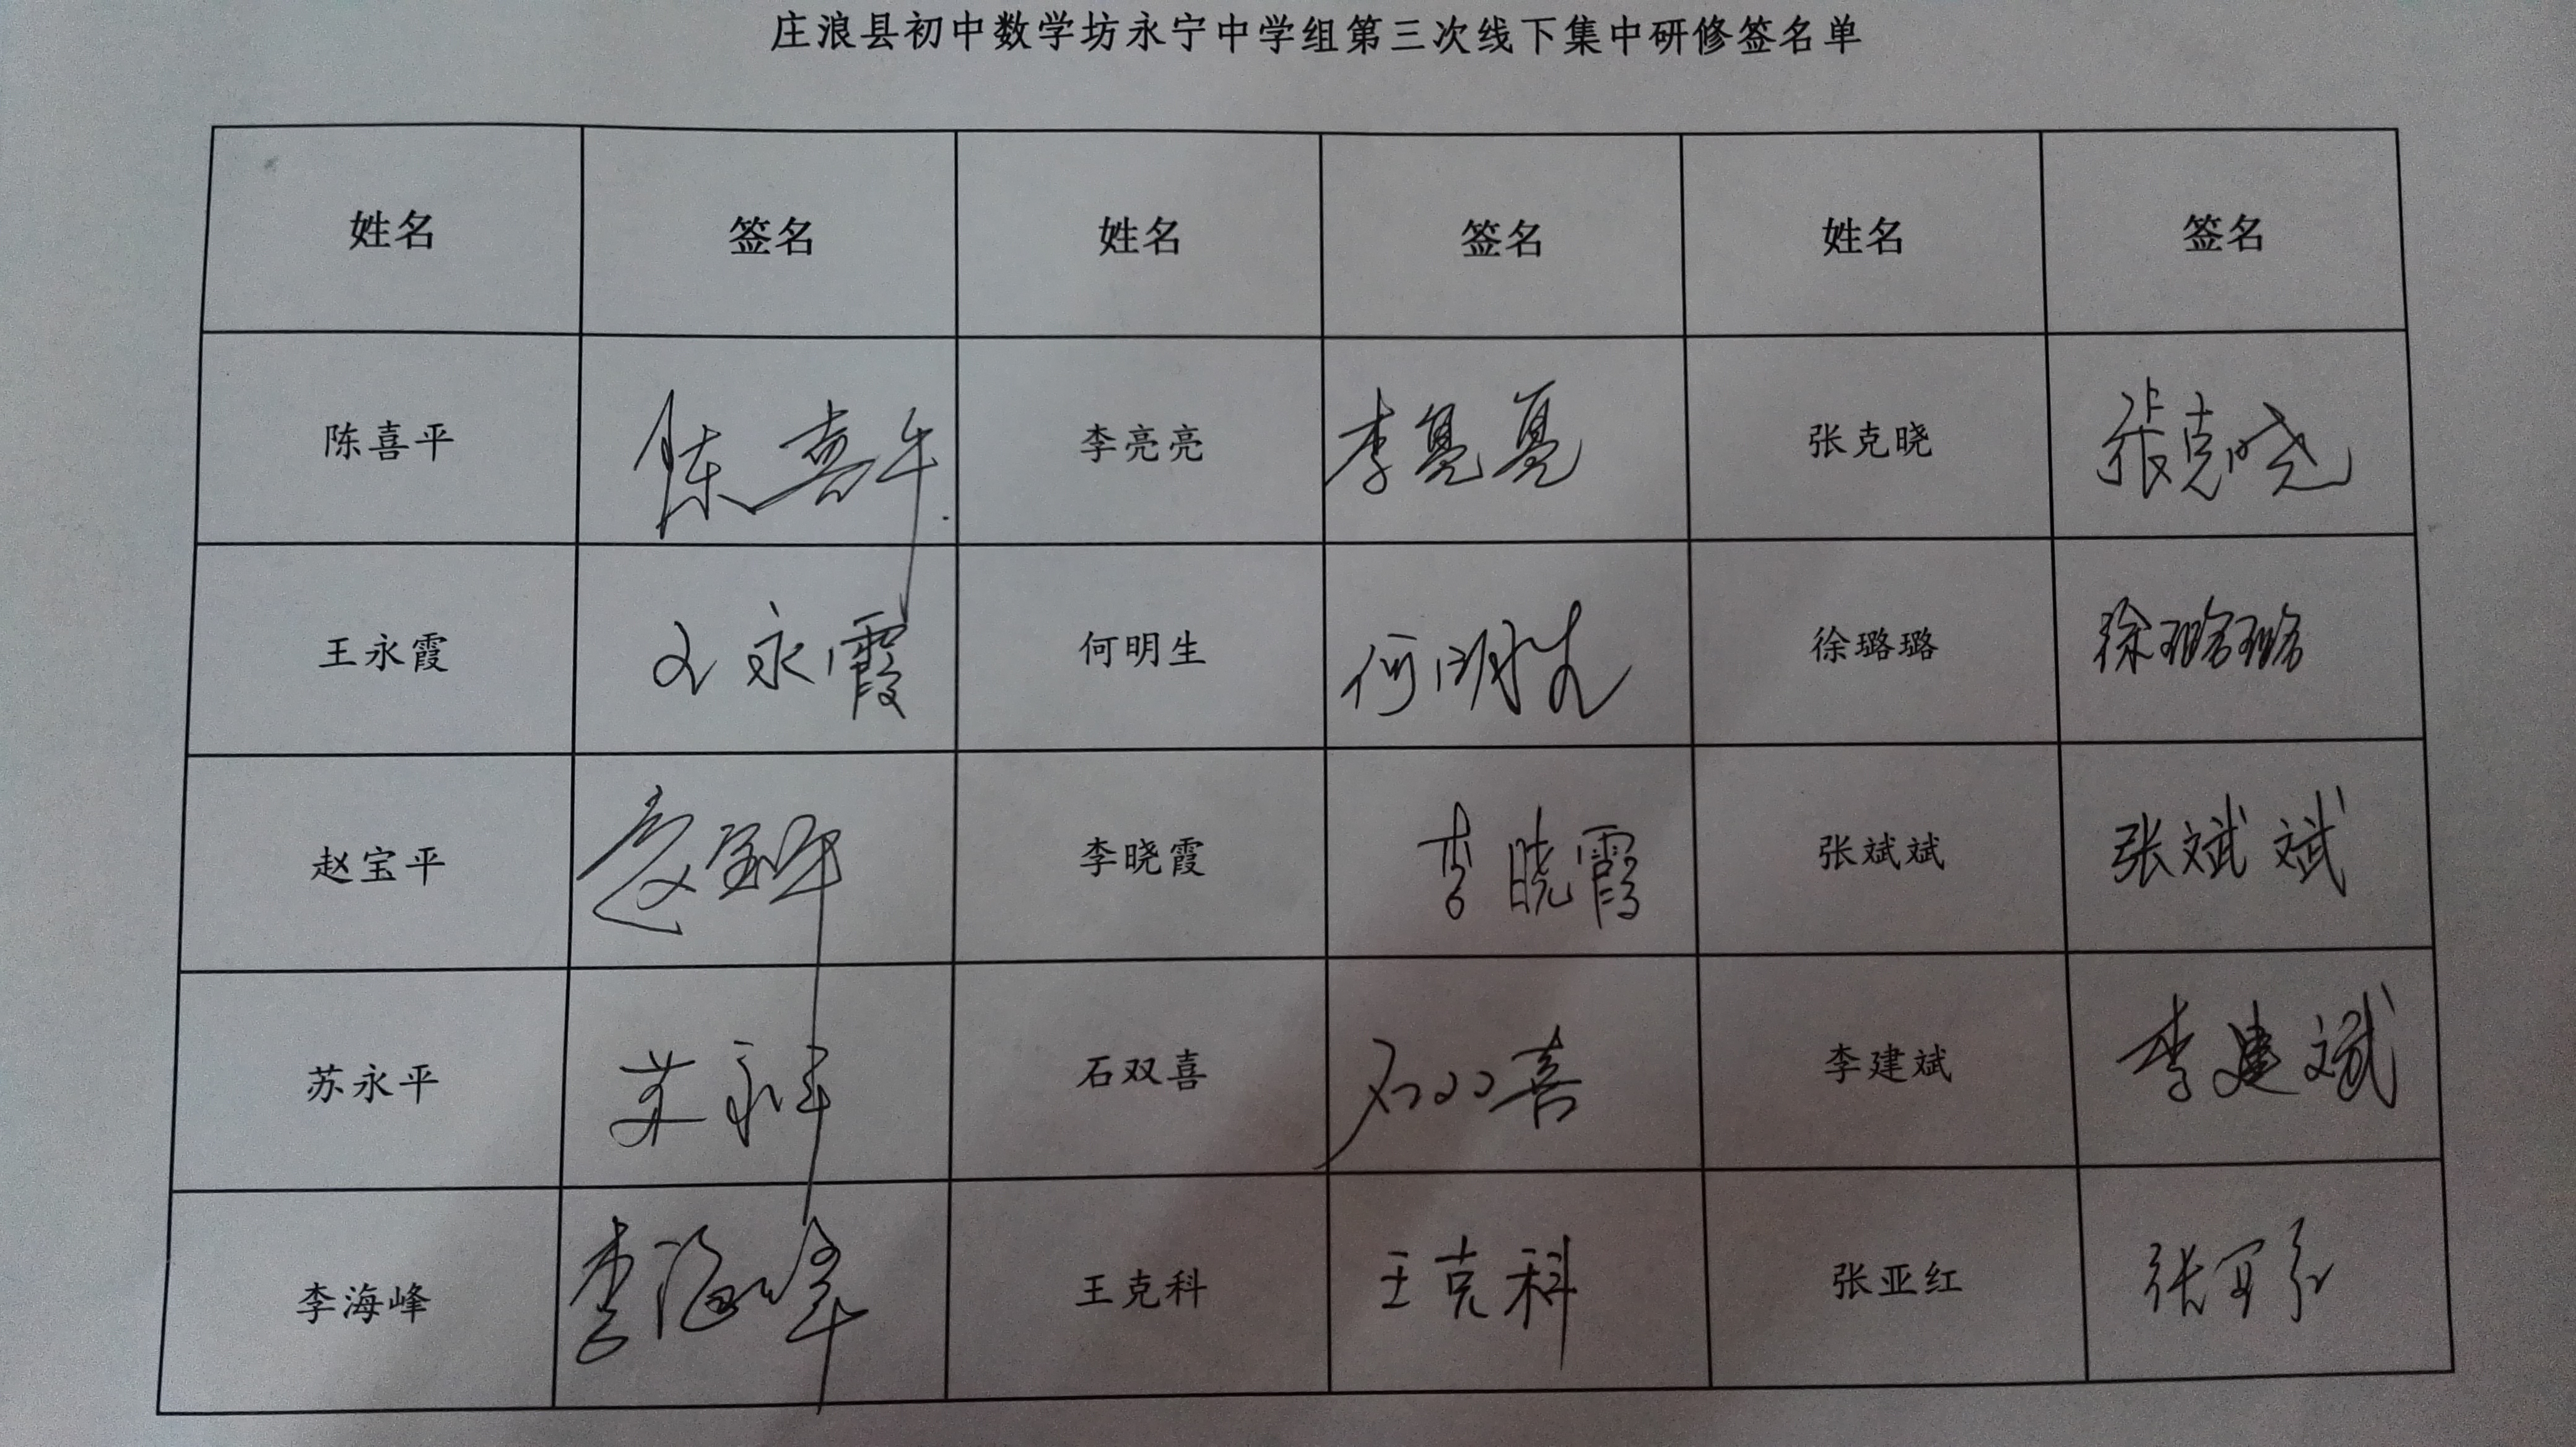 庄浪县初中数学坊永宁中学组第三次线下集中研修签名单
姓名 签名 姓名 签名 姓名 签名
陈喜平 陈喜平 李亮亮 李亮亮 张克晓 张克晓
王永霞 王永霞 何明生 何明生 徐璐璐 徐璐璐
赵宝平 赵宝平 李晓霞 李晓霞 张斌斌 张斌斌
苏永平 苏永平 石双喜 石双喜 李建斌 李建斌
李海峰 李海峰 王克科 王克科 张亚红 张亚红